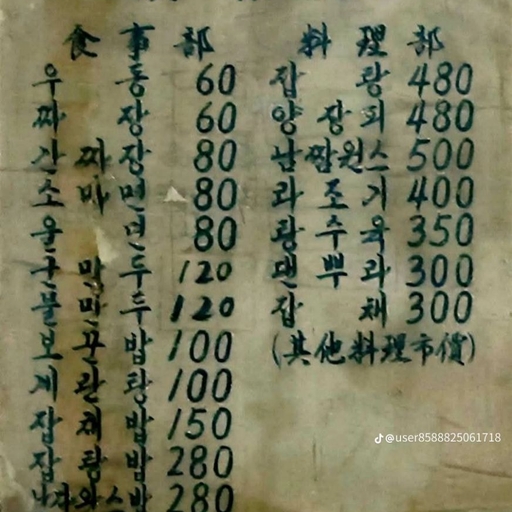 食事部
우동 60
짜장 60
간짜장 80
소마면 80
울면 80
군만두 120
물만두 120
보꾸밥 100
계란탕 100
잡채밥 150
잡탕밥 280
280
料理部
잡탕 480
양장피 480
500
라조기 400
탕수육 350
덴뿌라 300
잡채 300
(其他料理市價)
@user8588825061718